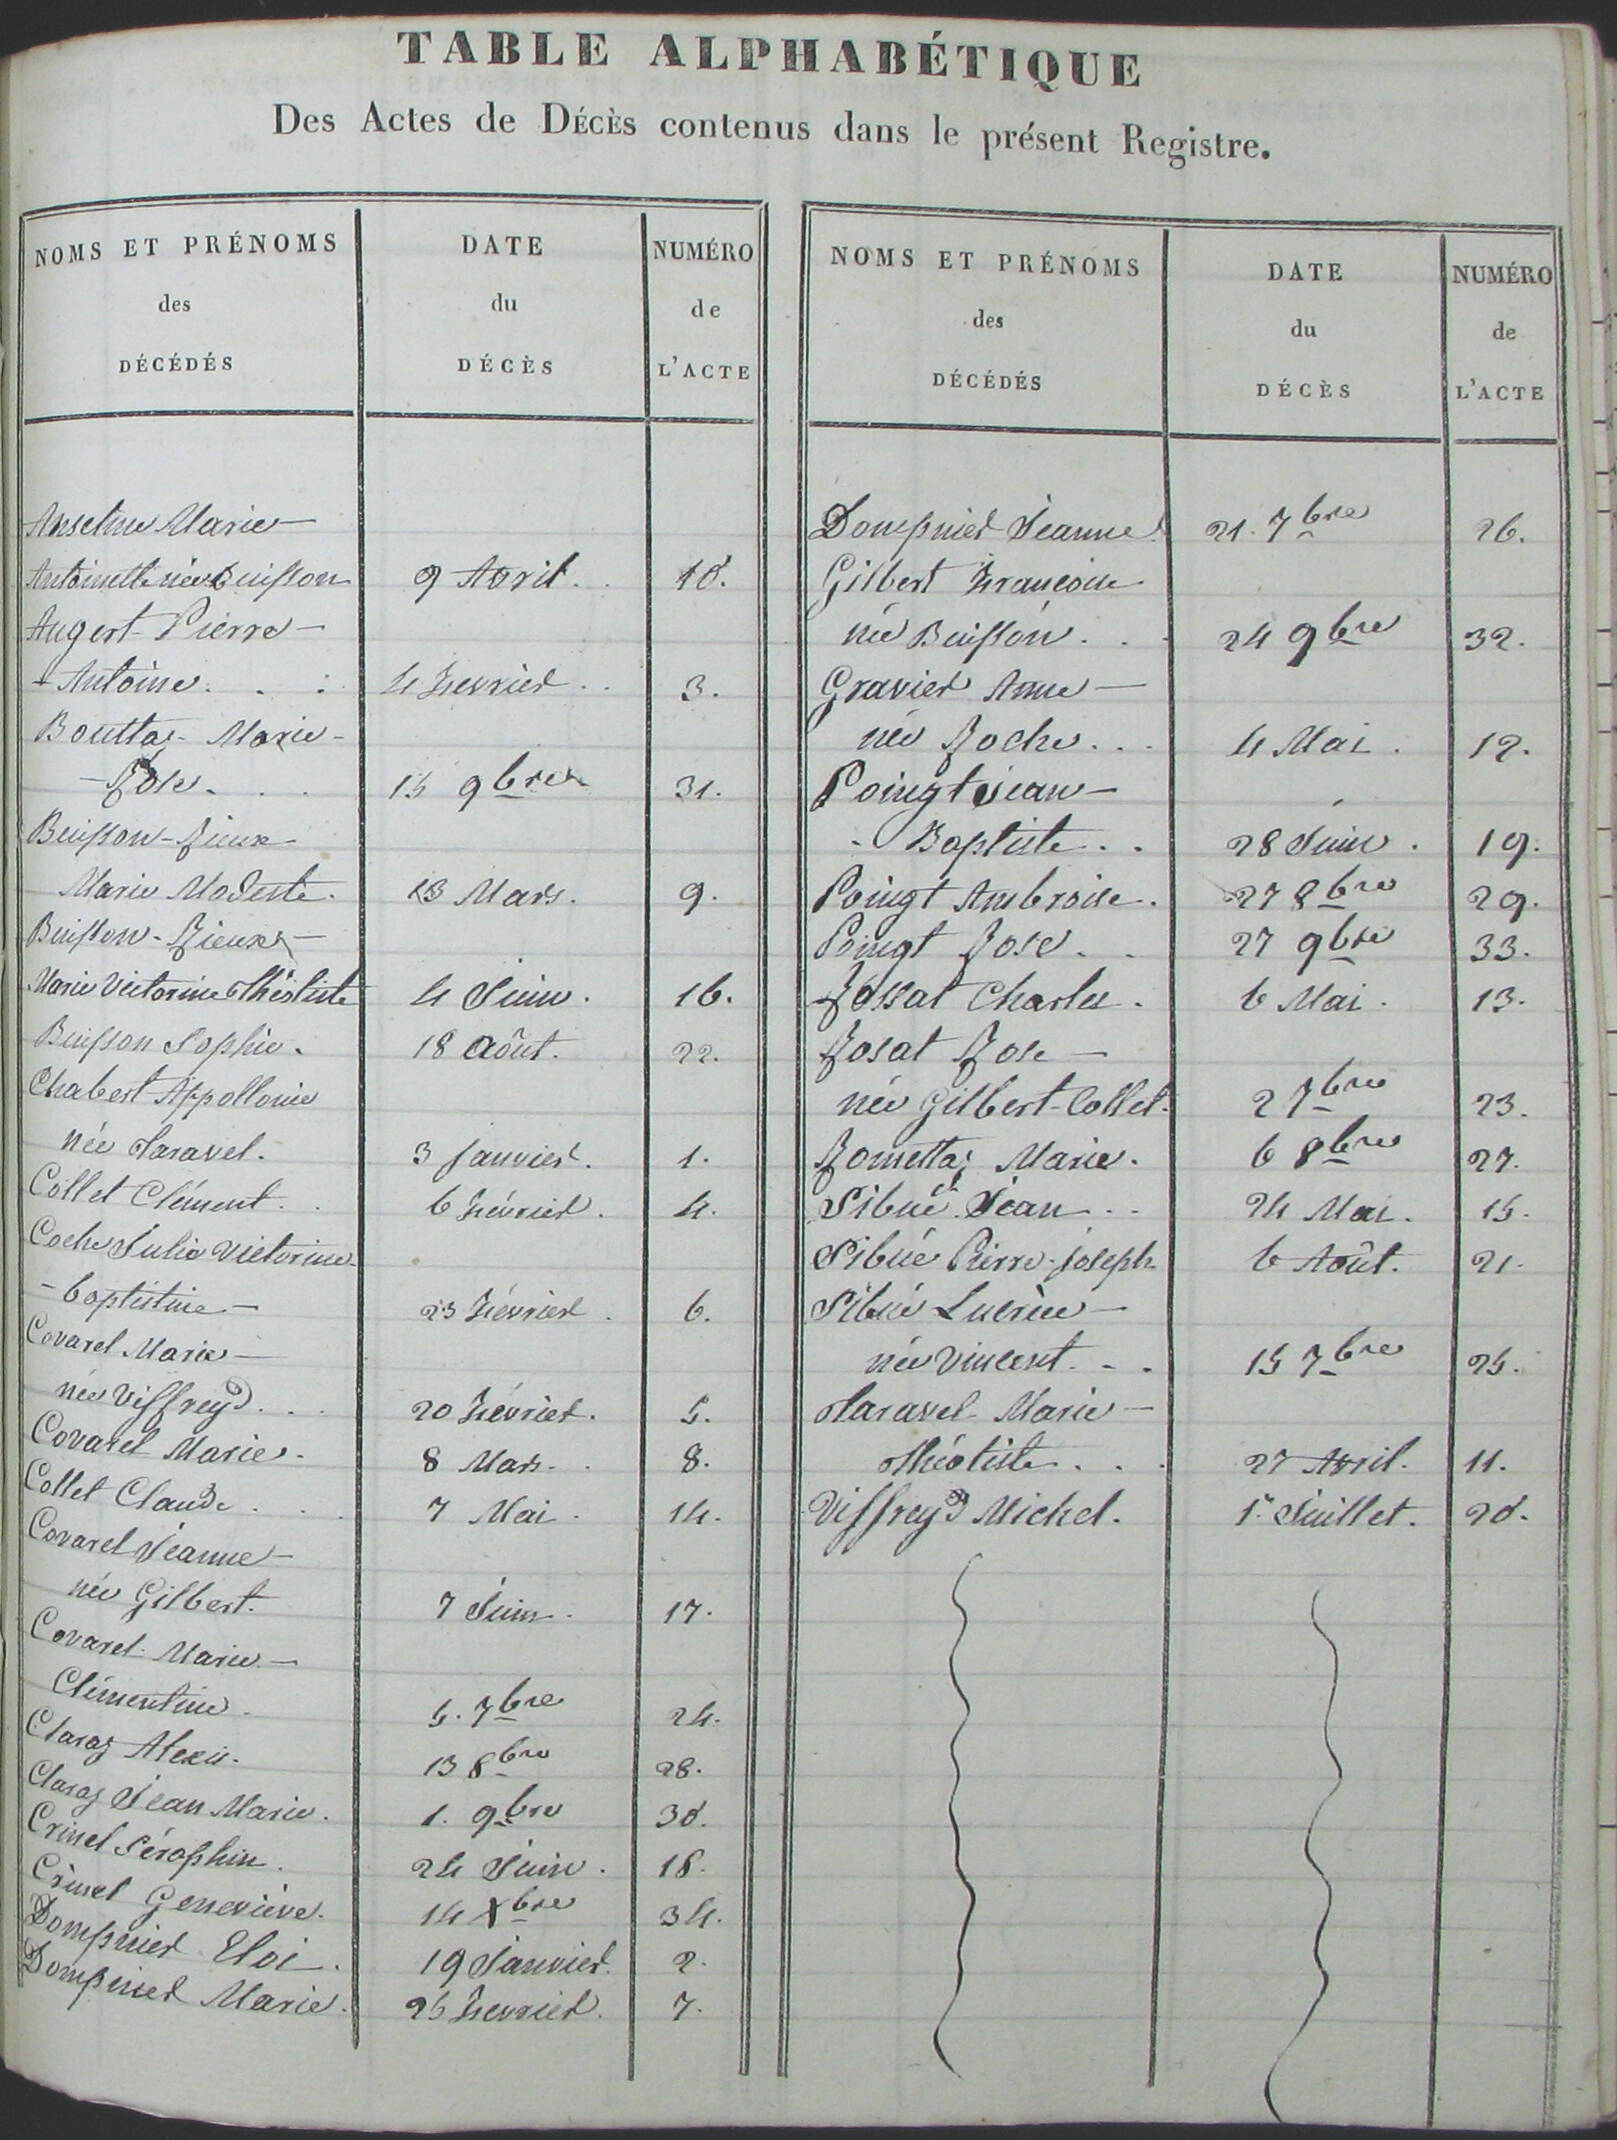 TABLE ALPHABÉTIQUE
Des Actes de DÉCÈS contenus dans le présent Registre.
NOMS ET PRÉNOMS des DÉCÉDÉS | DATE du DÉCÈS | NUMÉRO de L'ACTE
Anselme Marie-
Antoinette née Buisson 9 Avril. 10.
Augert Pierre-
-Antoine. 4 Fevrier 3.
Bouttaz Marie-
-Rose. 15 9bre 31.
Buisson-Rieux
Marie Modeste. 13 Mars. 9.
Buisson-Rieux-
Marie Victorine Théotiste 4 Juin. 16.
Buisson Sophie. 18 Aôut. 22.
Chabert Appollonie
née Taravel. 3 Janvier. 1.
Collet Clément. 6 Février. 4.
Coche Julie Victorine-
-baptistine- 23 Février 6.
Covarel Marie-
née Viffrey. 20 Février. 5.
Covarel Marie. 8 Mars. 8.
Collet Claude. 7 Mai. 14.
Covarel Jeanne-
née Gilbert. 7 Juin. 17.
Covarel Marie-
Clémentine. 5. 7bre 24.
Claraz Alexis. 13 8bre 28.
Claraz Jean Marie. 1. 9bre 30.
Crinel Séraphin. 24 Juin. 18.
Crinel Geneviève. 14 Xbre 34.
Dompnier Eloi. 19 Janvier. 2.
Dompnier Marie. 25 Fevrier. 7.
NOMS ET PRÉNOMS des DÉCÉDÉS | DATE du DÉCÈS | NUMÉRO de L'ACTE
Dompnier Jeanne 21. 7bre 26.
Gilbert Françoise
née Buisson. 24 9bre 32.
Gravier Anne-
née Roche. 4 Mai. 12.
Poingt Jean-
-Baptiste. 28 Juin. 19.
Poingt Ambroise. 27 8bre 29.
Poingt Rose. 27 9bre 33.
Rossat Charles. 6 Mai. 13.
Rosat Rose-
née Gilbert-Collet. 2 7bre 23.
Romettaz Marie. 6 8bre 27.
Sibué Jean. 24 Mai. 15.
Sibué Pierre-Joseph 6 Août. 21.
Sibué Lucrèce-
née Vincent. 15 7bre 25.
Taravel Marie-
Théotiste. 27 Avril. 11.
Viffrey Michel. 1r Juillet. 20.